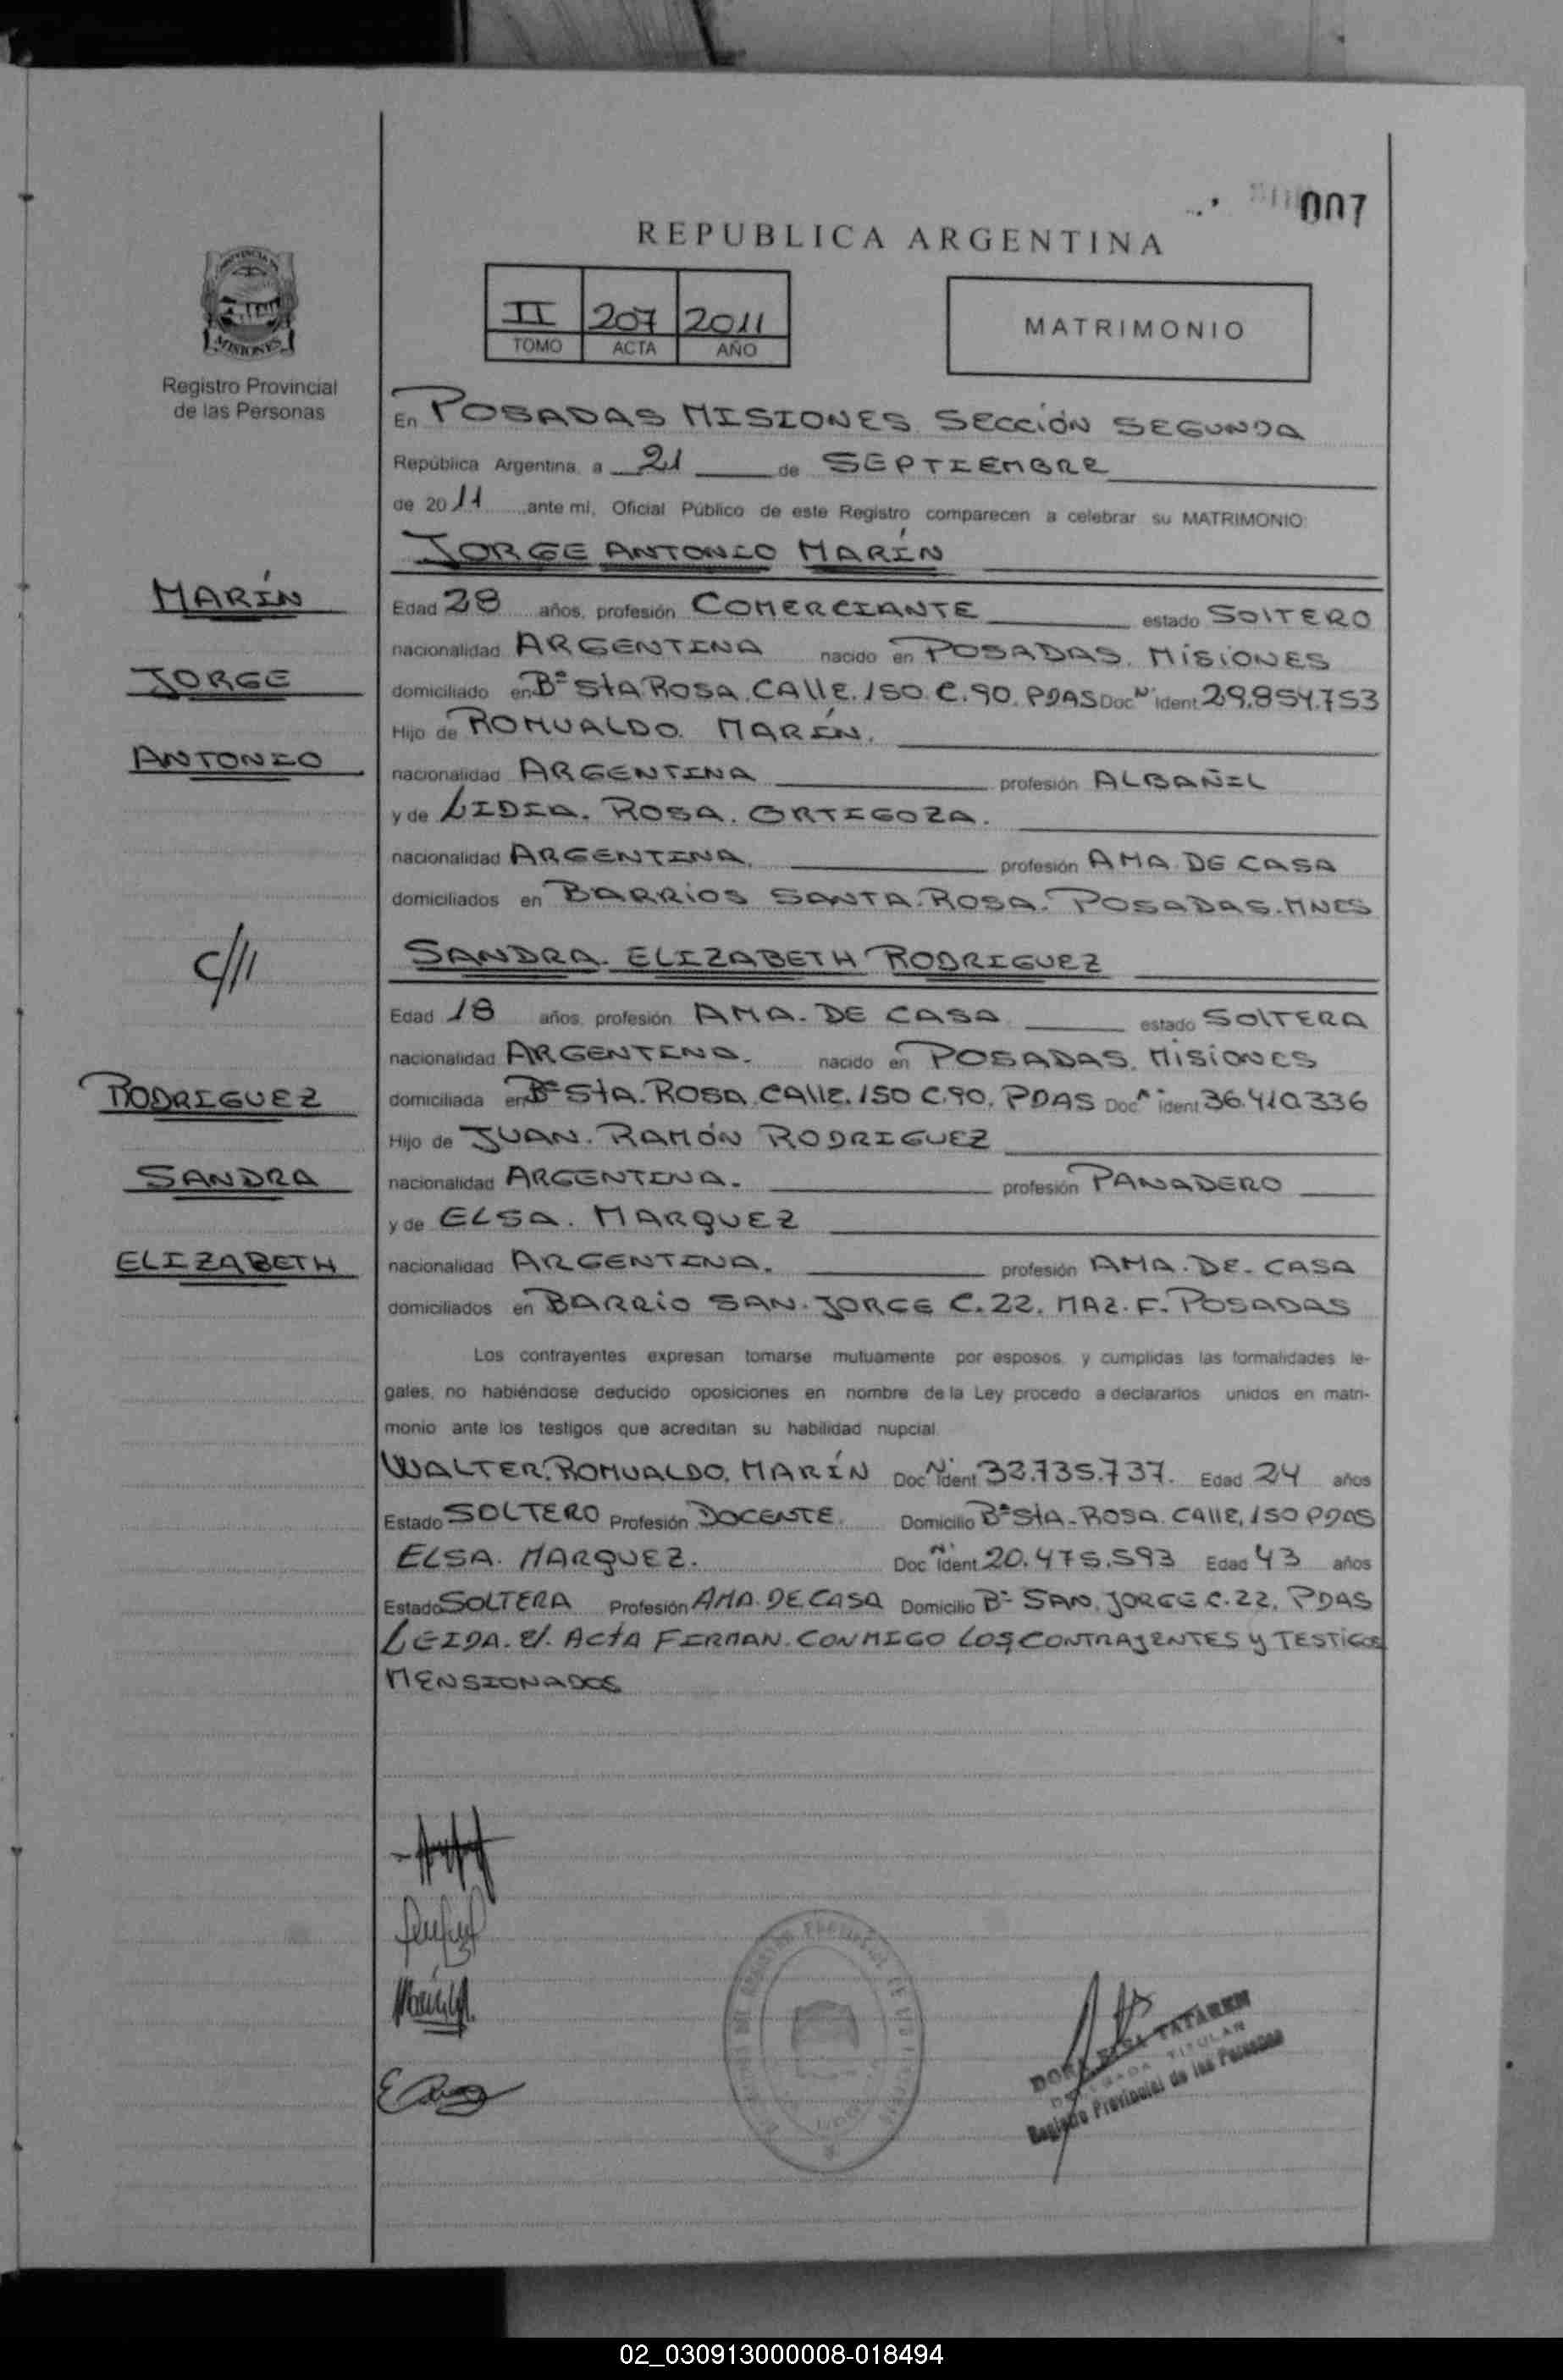 007
REPUBLICA ARGENTINA
II 207 2011
TOMO ACTA AÑO
MATRIMONIO
MISIONES
Registro Provincial
de las Personas
En POSADAS MISIONES SECCIÓN SEGUNDA
República Argentina, a 21 de SEPTIEMBRE
de 2011 ante mi, Oficial Público de este Registro comparecen a celebrar su MATRIMONIO:
JORGE ANTONIO MARÍN
MARÍN
Edad 28 años, profesión COMERCIANTE estado SOLTERO
nacionalidad ARGENTINA nacido en POSADAS. MISIONES
JORGE
domiciliado en Bº StA ROSA. CALLE. 150 C. 90. PDAS Doc Nº ident 29.854.753
Hijo de ROMUALDO. MARÍN.
ANTONIO
nacionalidad ARGENTINA profesión ALBAÑIL
y de LIDIA. ROSA. ORTIGOZA.
nacionalidad ARGENTINA. profesión AMA DE CASA
domiciliados en BARRIOS SANTA. ROSA. POSADAS. MNES
C///
SANDRA. ELIZABETH RODRIGUEZ
Edad 18 años, profesión AMA. DE CASA estado SOLTERA
nacionalidad ARGENTINA. nacido en POSADAS. MISIONES
RODRIGUEZ
domiciliada en Bº StA. ROSA CALLE. 150 C. 90. PDAS Doc Nº ident 36.410.336
Hijo de JUAN. RAMÓN RODRIGUEZ
SANDRA
nacionalidad ARGENTINA. profesión PANADERO
y de ELSA. MARQUEZ
ELIZABETH
nacionalidad ARGENTINA. profesión AMA. DE. CASA
domiciliados en BARRIO SAN. JORGE C. 22. MAZ. F. POSADAS
Los contrayentes expresan tomarse mutuamente por esposos, y cumplidas las formalidades le-
gales, no habiéndose deducido oposiciones en nombre de la Ley procedo a declararlos unidos en matri-
monio ante los testigos que acreditan su habilidad nupcial.
WALTER. ROMUALDO. MARÍN Doc Nº ident 32.735.737. Edad 24 años
Estado SOLTERO Profesión DOCENTE. Domicilio Bº StA. ROSA. CALLE, 150 PDAS
ELSA. MARQUEZ. Doc Nº ident 20.475.593 Edad 43 años
Estado SOLTERA Profesión AMA. DE CASA Domicilio Bº SAN. JORGE C. 22. PDAS
LEIDA. El. ACtA FIRMAN. CONMIGO LOS CONTRAYENTES y TESTIGOS
MENSIONADOS
TATAREN
TITULAR
Registro Provincial de las Personas
02_030913000008-018494